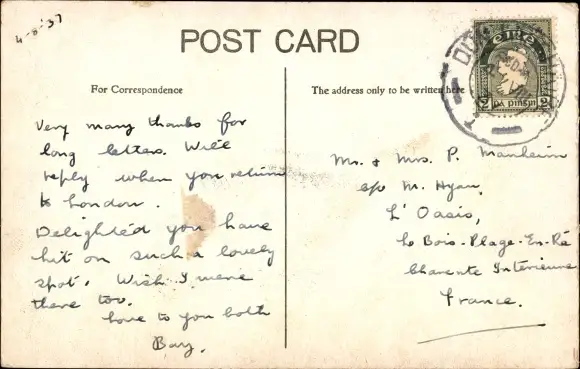 4-8-37
POST CARD
For Correspondence
The address only to be written here
éire
2 dá pingin 2
Very many thanks for
long letters. Will
reply when you return
to London.
Delighted you have
hit on such a lovely
spot. Wish I were
there too.
Love to you both
Bay.
Mr. & Mrs. P. Manheim
c/o M. Hyan,
L'Oasis,
Le Bois-Plage-En-Ré
Charente Intérieure
France.